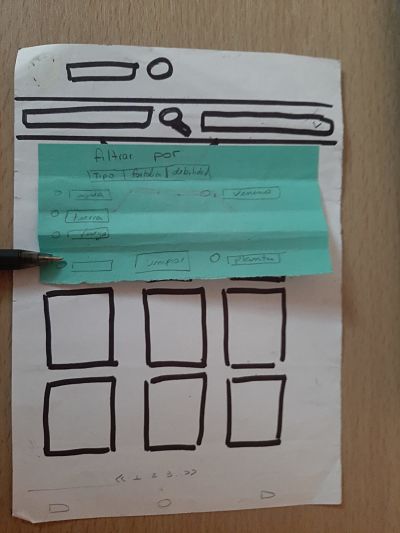 filtrar por
Tipo fortaleza debilidad
agua veneno
tierra
fuego
limpiar planta
<< 1 2 3. >>